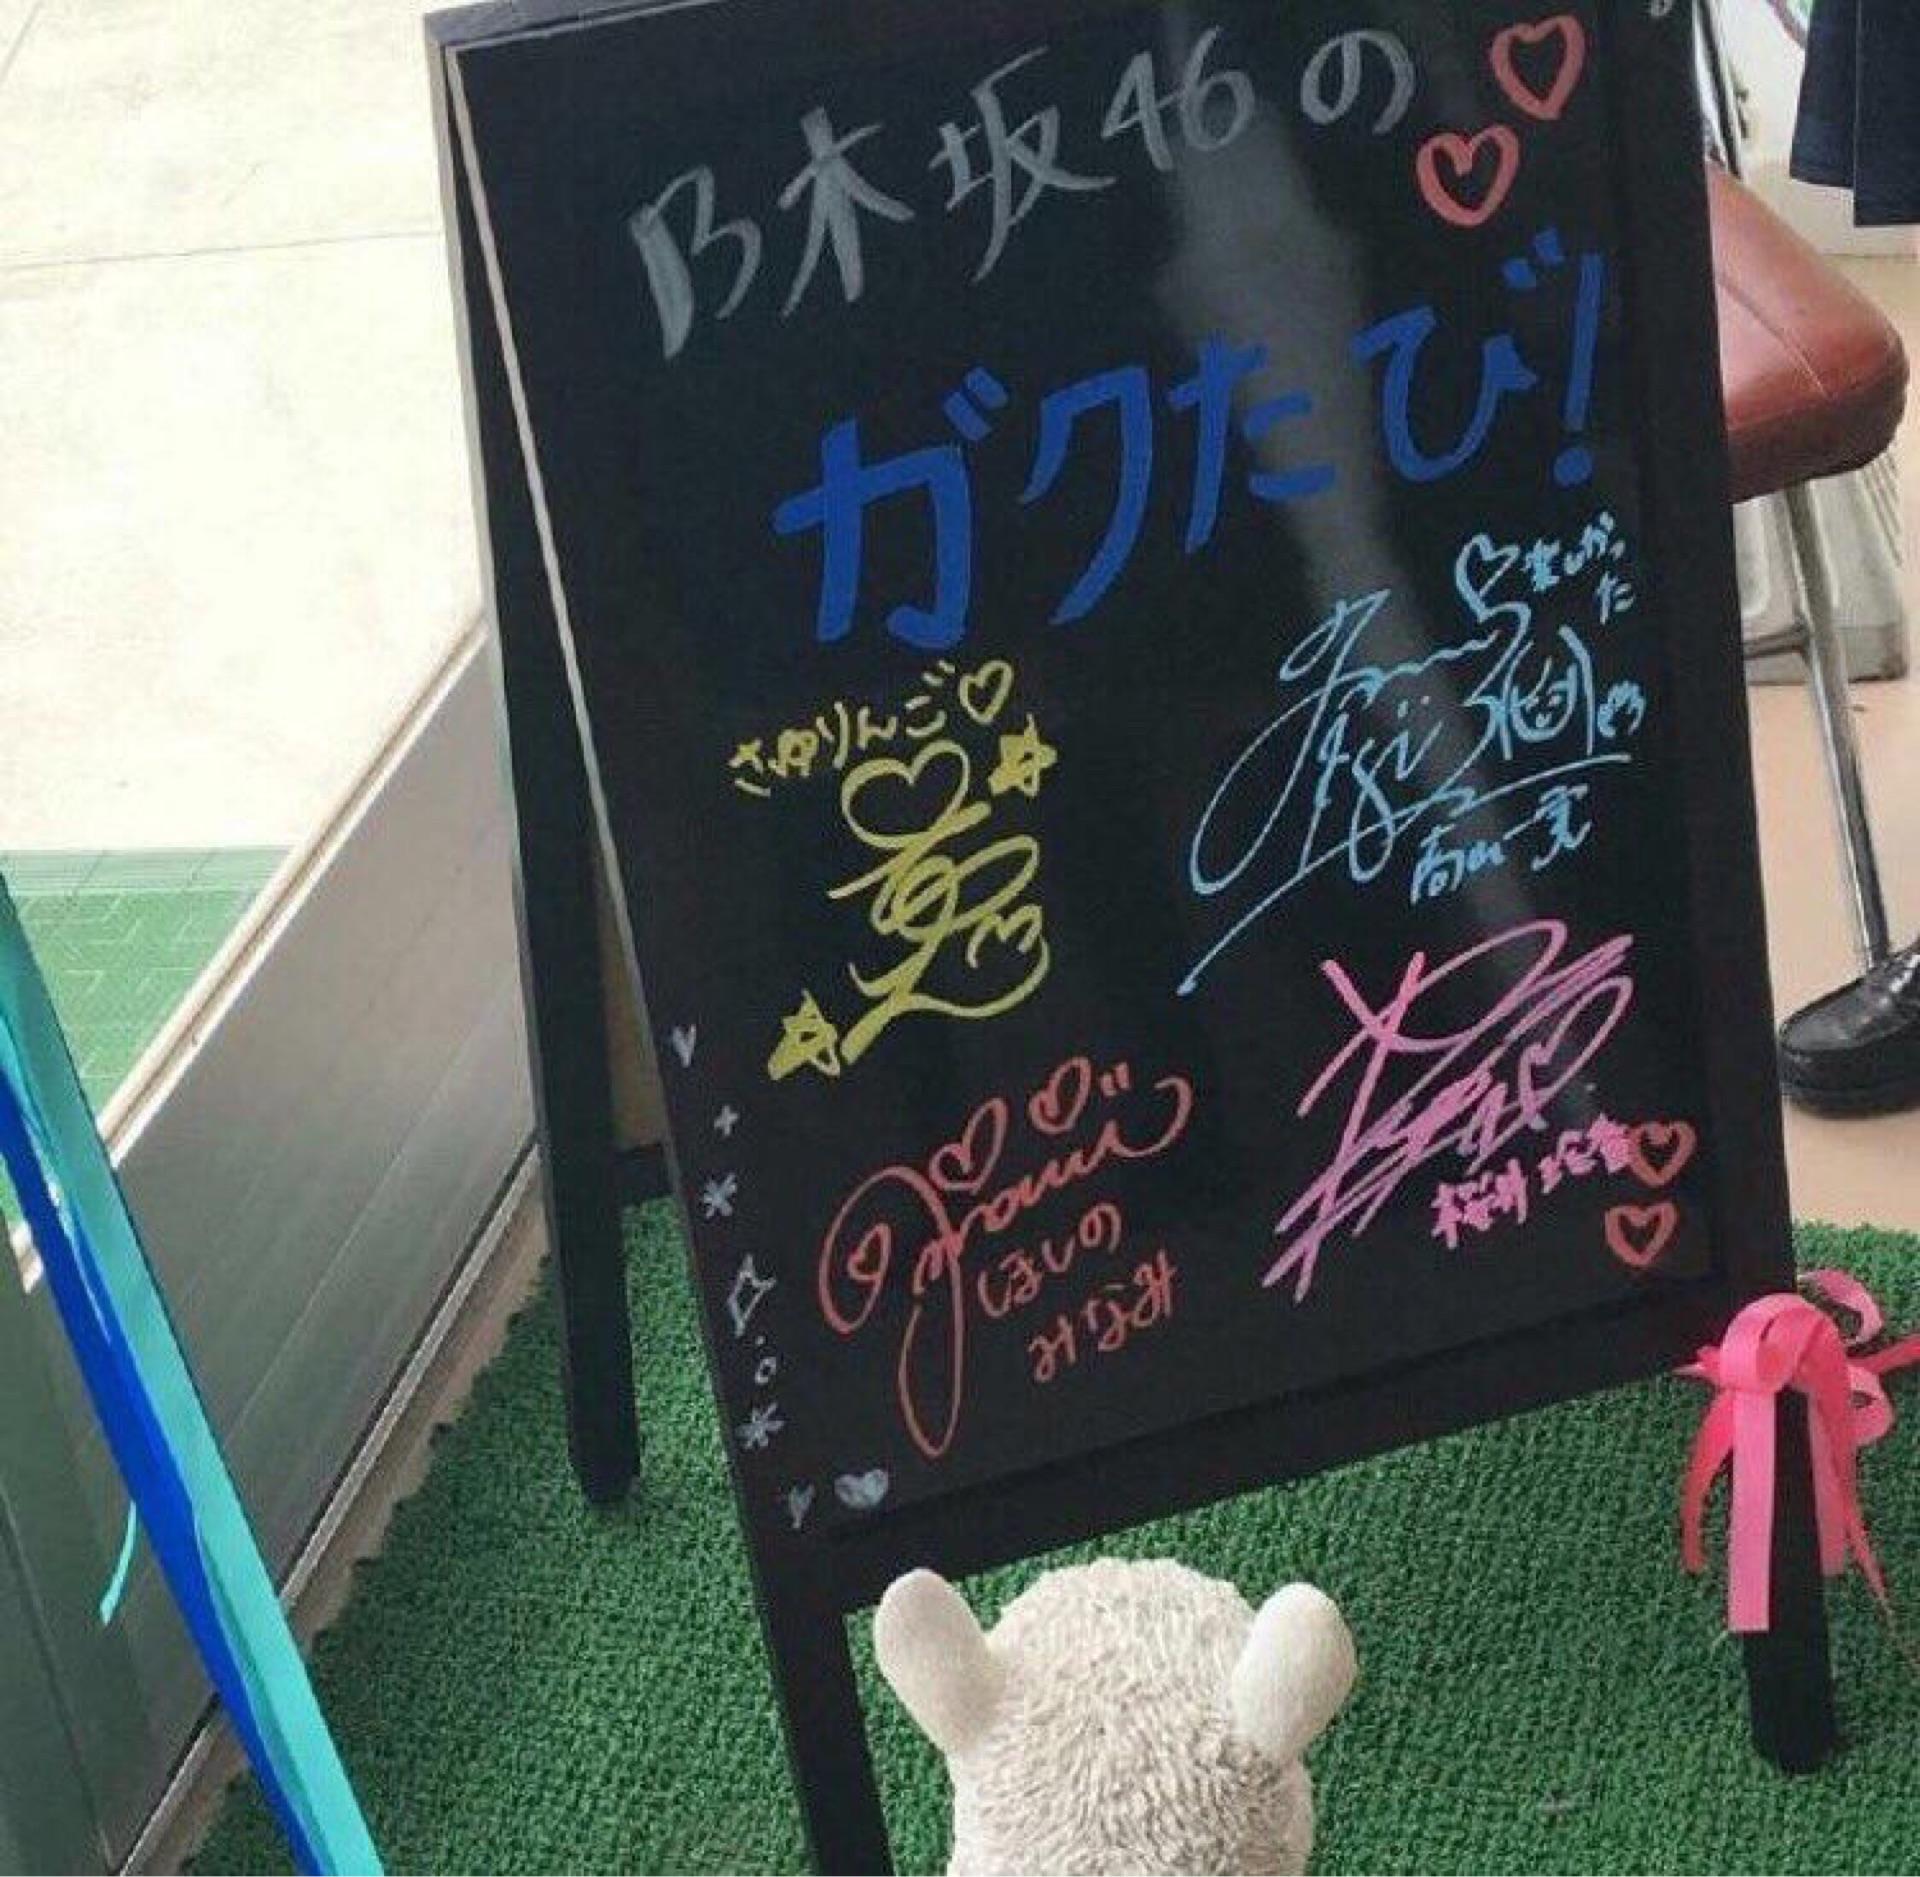 乃木坂46の
ガクたび!
さゆりんご
楽しかった
高山一実
ほしの
みなみ
桜井玲香